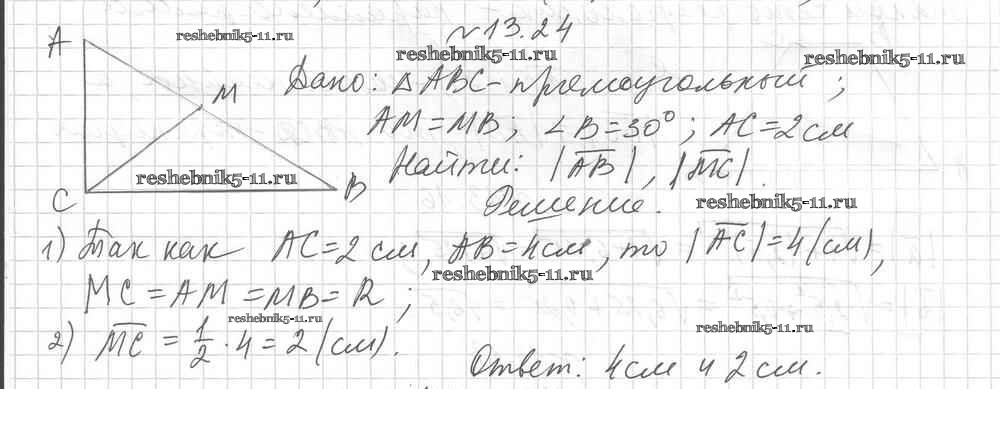 №13.24
A
M
C
B
Дано: △ABC - прямоугольный ;
AM = MB ; ∠B = 30° ; AC = 2 см
Найти: |AB|, |MC|.
Решение.
1) Так как AC = 2 см, AB = 4 см, то |AC| = 4 (см),
MC = AM = MB = R ;
2) MC = 1/2 · 4 = 2 (см).
Ответ: 4 см и 2 см.
reshebnik5-11.ru
reshebnik5-11.ru
reshebnik5-11.ru
reshebnik5-11.ru
reshebnik5-11.ru
reshebnik5-11.ru
reshebnik5-11.ru
reshebnik5-11.ru